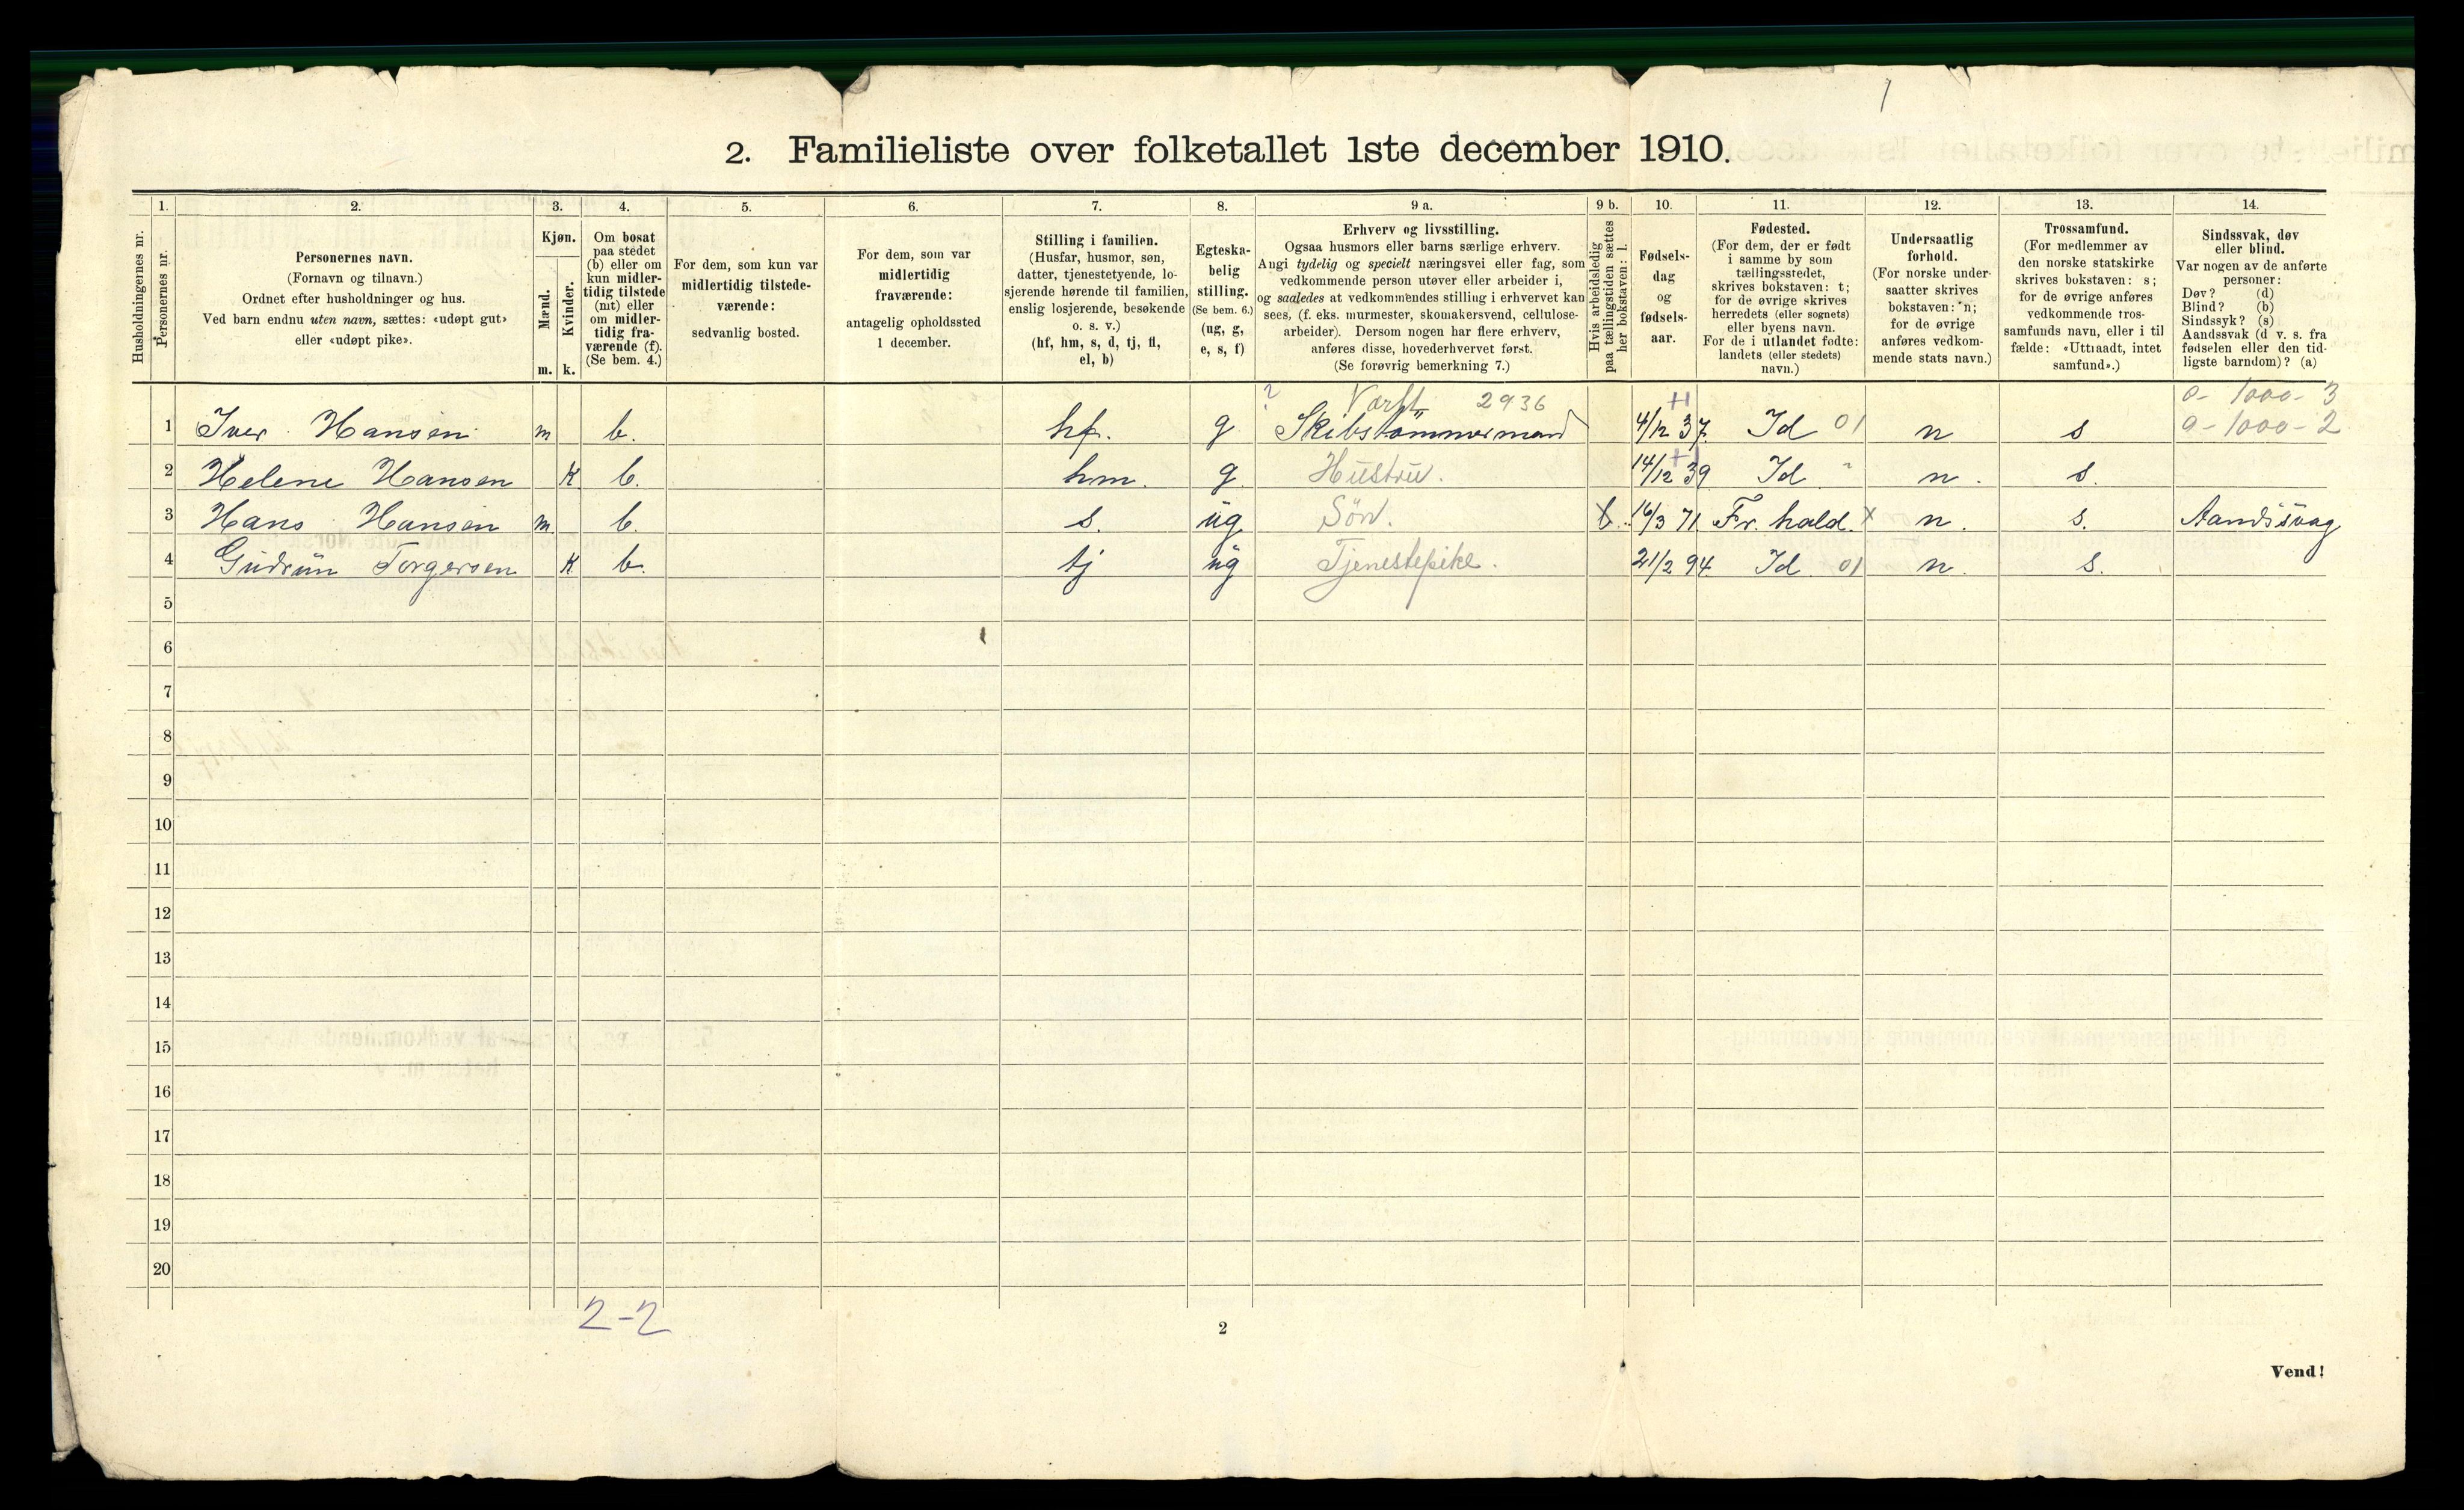 2. Familieliste over folketallet 1ste december 1910.
Husholdningernes nr.
1.
Personernes nr.
2.
Personernes navn.
(Fornavn og tilnavn.)
Ordnet efter husholdninger og hus.
Ved barn endnu uten navn, sættes: «udøpt gut»
eller «udøpt pike».
3.
Kjøn.
Mænd.
Kvinder.
m. k.
4.
Om bosat
paa stedet
(b) eller om
kun midler-
tidig tilstede
(mt) eller
om midler-
tidig fra-
værende (f).
(Se bem. 4.)
5.
For dem, som kun var
midlertidig tilstede-
værende:
sedvanlig bosted.
6.
For dem, som var
midlertidig
fraværende:
antagelig opholdssted
1 december.
7.
Stilling i familien.
(Husfar, husmor, søn,
datter, tjenestetyende, lo-
sjerende hørende til familien,
enslig losjerende, besøkende
o. s. v.)
(hf, hm, s, d, tj, fl,
el, b)
8.
Egteska-
belig
stilling.
(Se bem. 6.)
(ug, g,
e, s, f)
9 a.
Erhverv og livsstilling.
Ogsaa husmors eller barns særlige erhverv.
Angi tydelig og specielt næringsvei eller fag, som
vedkommende person utøver eller arbeider i,
og saaledes at vedkommendes stilling i erhvervet kan
sees, (f. eks. murmester, skomakersvend, cellulose-
arbeider). Dersom nogen har flere erhverv,
anføres disse, hovederhvervet først.
(Se forøvrig bemerkning 7.)
9 b.
Hvis arbeidsledig
paa tællingstiden sættes
her bokstaven: l.
10.
Fødsels-
dag
og
fødsels-
aar.
11.
Fødested.
(For dem, der er født
i samme by som
tællingsstedet,
skrives bokstaven: t;
for de øvrige skrives
herredets (eller sognets)
eller byens navn.
For de i utlandet fødte:
landets (eller stedets)
navn.)
12.
Undersaatlig
forhold.
(For norske under-
saatter skrives
bokstaven: n;
for de øvrige
anføres vedkom-
mende stats navn.)
13.
Trossamfund.
(For medlemmer av
den norske statskirke
skrives bokstaven: s;
for de øvrige anføres
vedkommende tros-
samfunds navn, eller i til
fælde: «Uttraadt, intet
samfund».)
14.
Sindssvak, døv
eller blind.
Var nogen av de anførte
personer:
Døv? (d)
Blind? (b)
Sindssyk? (s)
Aandssvak (d v. s. fra
fødselen eller den tid-
ligste barndom)? (a)
? Værft 2936 0- 1000- 3
1 Iver Hansen m b. hf. g Skibstømmermand 4/12 37. Id 01 n s 0- 1000- 2
2 Helene Hansen K b. hm. g Hustru. 14/12 39 Id " n. s.
3 Hans Hansen m b. s. ug Sön. 16/3 71. Fr. hald. x n. s. Aandssvag
4 Gudrun Torgersen K b. tj ug Tjenestepike. 21/2 94. Id. 01 n. s.
5
6
7
8
9
10
11
12
13
14
15
16
17
18
19
20
2-2
2
Vend!